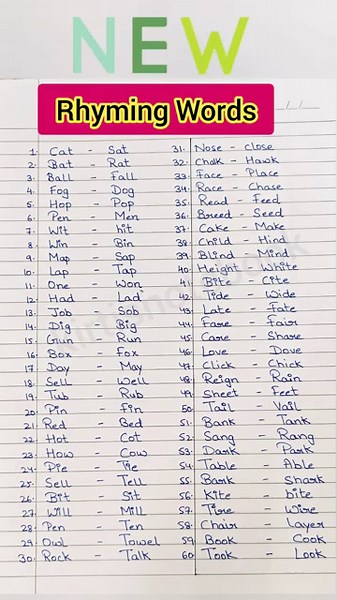 NEW
Rhyming Words
1. Cat - Sat
2. Bat - Rat
3. Ball - Fall
4. Fog - Dog
5. Hop - Pop
6. Pen - Men
7. Wit - hit
8. Win - Bin
9. Map - Sap
10. Lap - Tap
11. One - Won
12. Had - Lad
13. Job - Sob
14. Dig - Big
15. Gun - Run
16. Box - Fox
17. Day - May
18. Sell - Well
19. Tub - Rub
20. Pin - fin
21. Red - Bed
22. Hot - Cot
23. How - Cow
24. Pie - Tie
25. Sell - Tell
26. Bit - Sit
27. Will - Mill
28. Pen - Ten
29. Owl - Towel
30. Rock - Talk
31. Nose - close
32. Chalk - Hawk
33. Face - Place
34. Race - Chase
35. Read - Feed
36. Breed - Seed
37. Cake - Make
38. Child - Hind
39. Blind - Mind
40. Height - White
41. Bite - Cite
42. Tide - Wide
43. Late - Fate
44. Fare - Fair
45. Care - Share
46. Love - Dove
47. Click - Chick
48. Reign - Rain
49. Sheet - Feet
50. Tail - Vail
51. Bank - Tank
52. Sang - Rang
53. Dark - Park
54. Table - Able
55. Bark - Shark
56. Kite - bite
57. Tire - Wire
58. Chair - Layer
59. Book - Cook
60. Took - Look